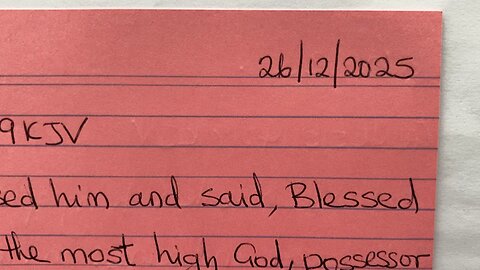 26/12/2025
9 KJV
sed him and said, Blessed
the most high God, possessor